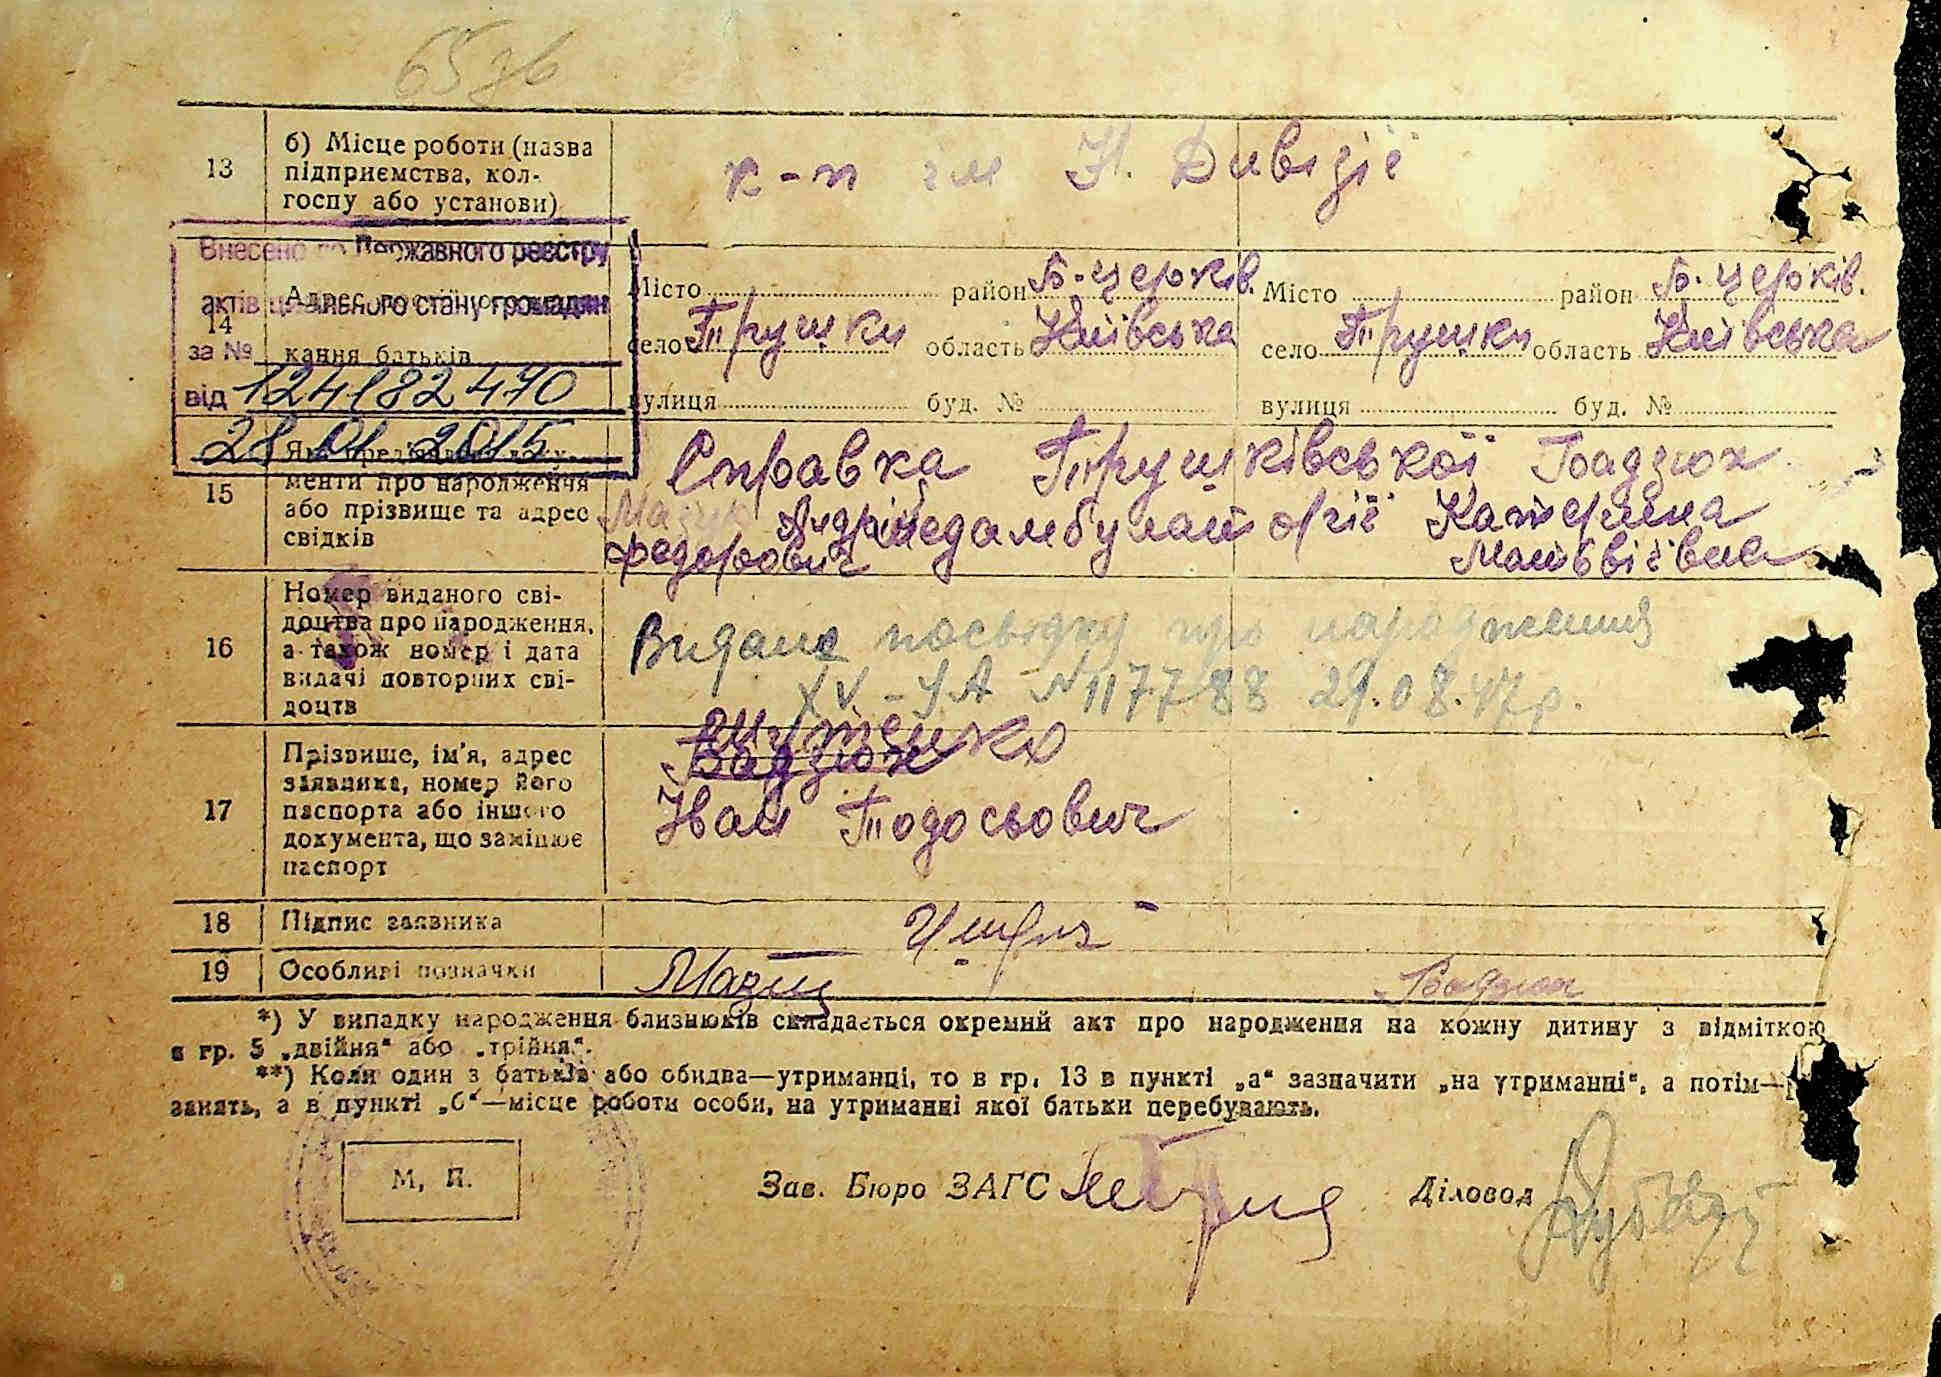 13
б) Місце роботи (назва
підприємства, кол-
госпу або установи)
к-п ім Н. Дивізії
Внесено до Державного реєстру
актів цивільного стану громадян
за №
від 124182470
28 01 2015
14
кання батьків
Місто район Б-Церків.
село Трушки область Київська
вулиця буд. №
Місто район Б-Церків.
село Трушки область Київська
вулиця буд. №
15
менти про народження
або прізвище та адрес
свідків
Справка Трушківської Бадзюх
Мазур Андрій медамбулаторії Катерина
Федорович Матвіївна
16
Номер виданого сві-
доцтва про народження,
а також номер і дата
видачі повторних сві-
доцтв
Видана посвідку про народження
XV-ЯА №117788 29.08.47р.
17
Прізвище, ім'я, адрес
заявника, номер його
паспорта або іншого
документа, що замінює
паспорт
Бадзюх
Іван Тодосьович
18
Підпис заявника
19
Особливі позначки
Бадзюх
*) У випадку народження близнюків складається окремий акт про народження на кожну дитину з відміткою
в гр. 5 „двійня“ або „трійня“.
**) Коли один з батьків або обидва—утриманці, то в гр. 13 в пункті „а“ зазначити „на утриманні“, а потім—
занять, а в пункті „б“—місце роботи особи, на утриманні якої батьки перебувають.
М. П.
Зав. Бюро ЗАГС
Діловод